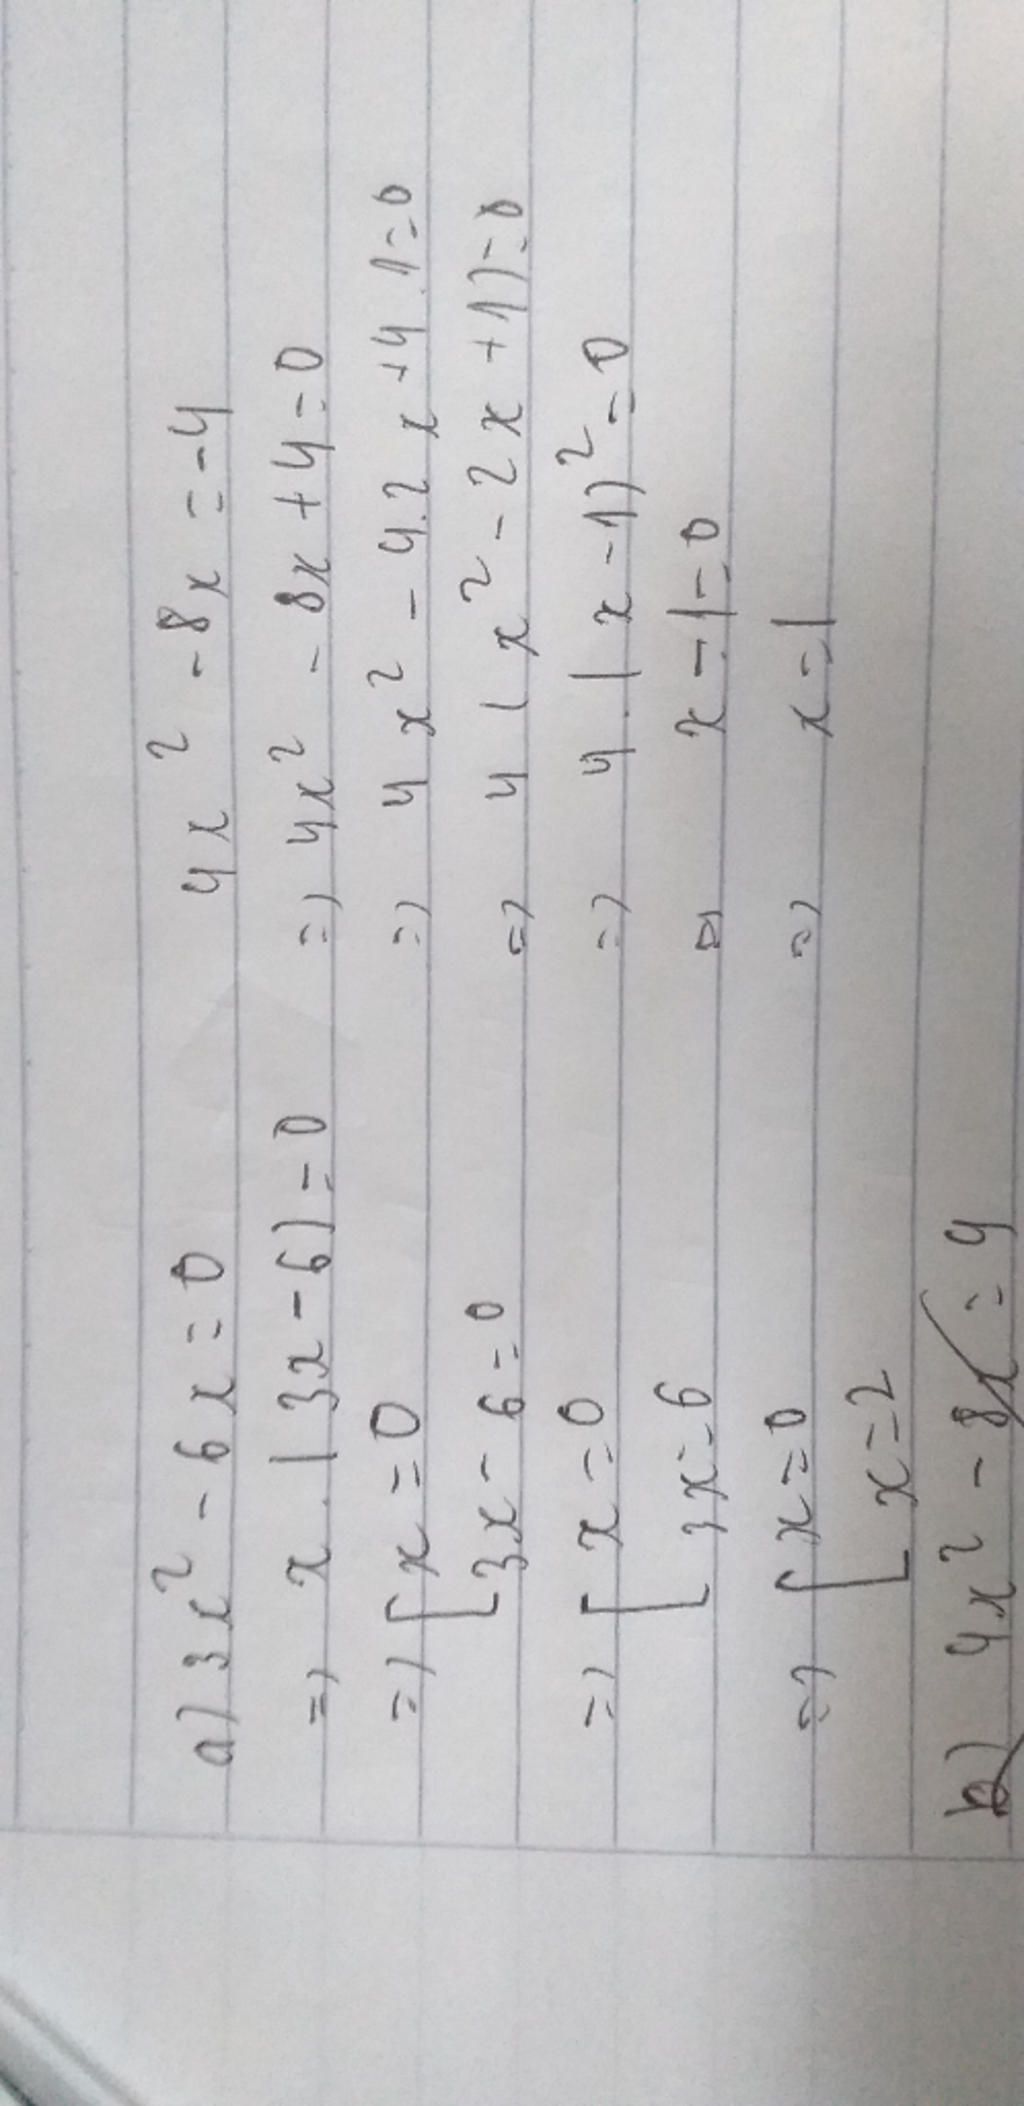 a) 3x² - 6x = 0
=) x . (3x - 6) = 0
=) [ x = 0
[ 3x - 6 = 0
=) [ x = 0
[ 3x = 6
=) [ x = 0
[ x = 2
b) 4x² - 8x = 4
4x² - 8x = -4
=) 4x² - 8x + 4 = 0
=) 4x² - 4.2x + 4.1 = 0
=) 4(x² - 2x + 1) = 0
=) 4.(x - 1)² = 0
=) x - 1 = 0
=) x = 1